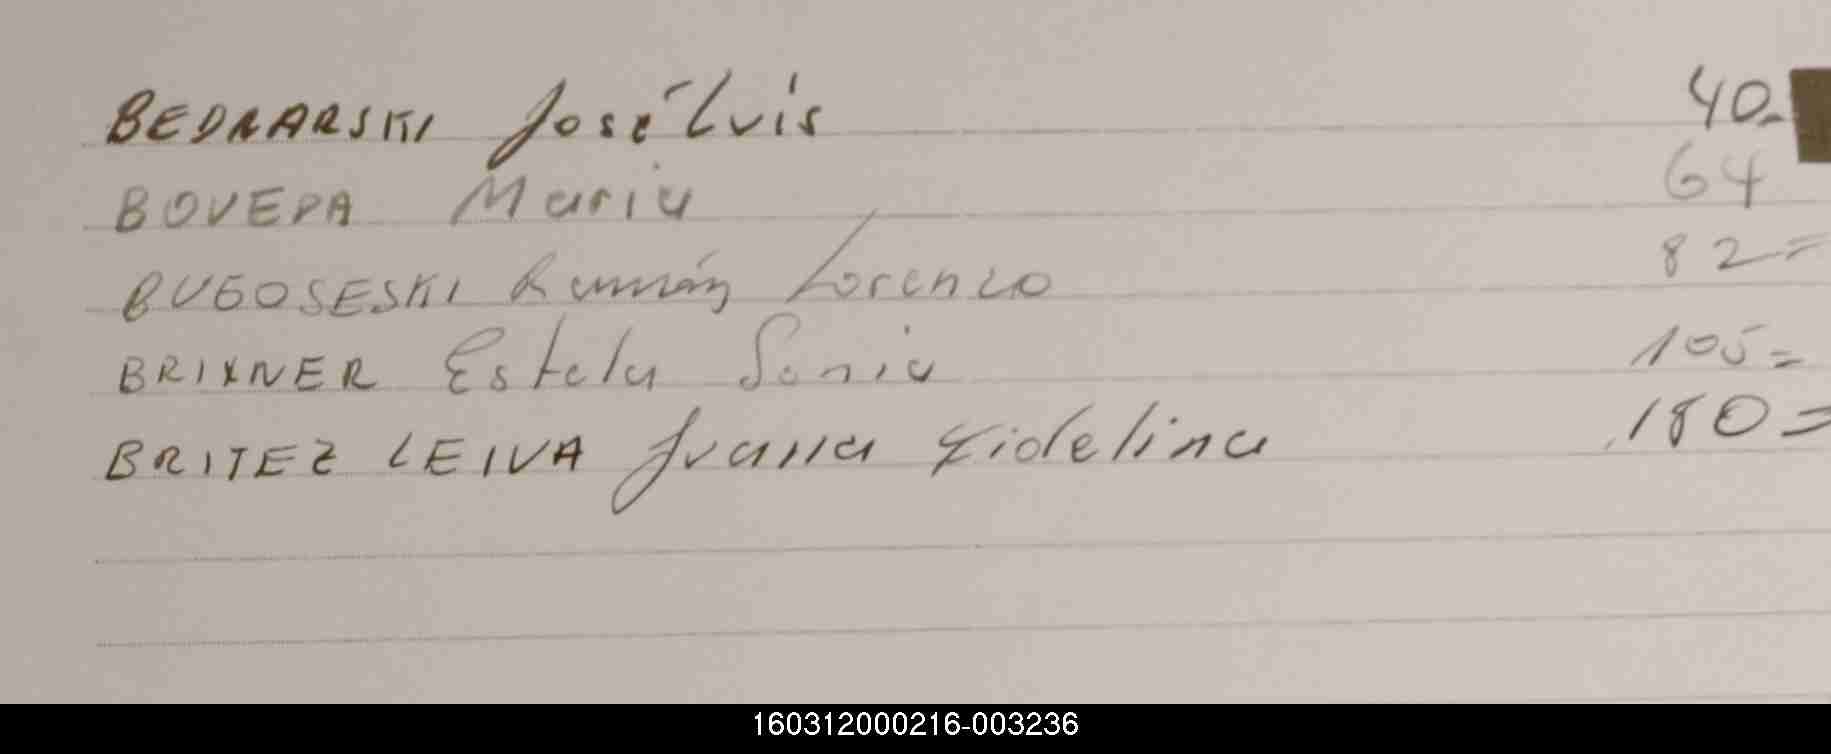 BEDNARSKI José Luis 40=
BOVEDA Maria 64
BUGOSESKI Ramón Lorenzo 82=
BRIXNER Estela Sonia 105=
BRITEZ LEIVA Juana Fidelina 180=
160312000216-003236